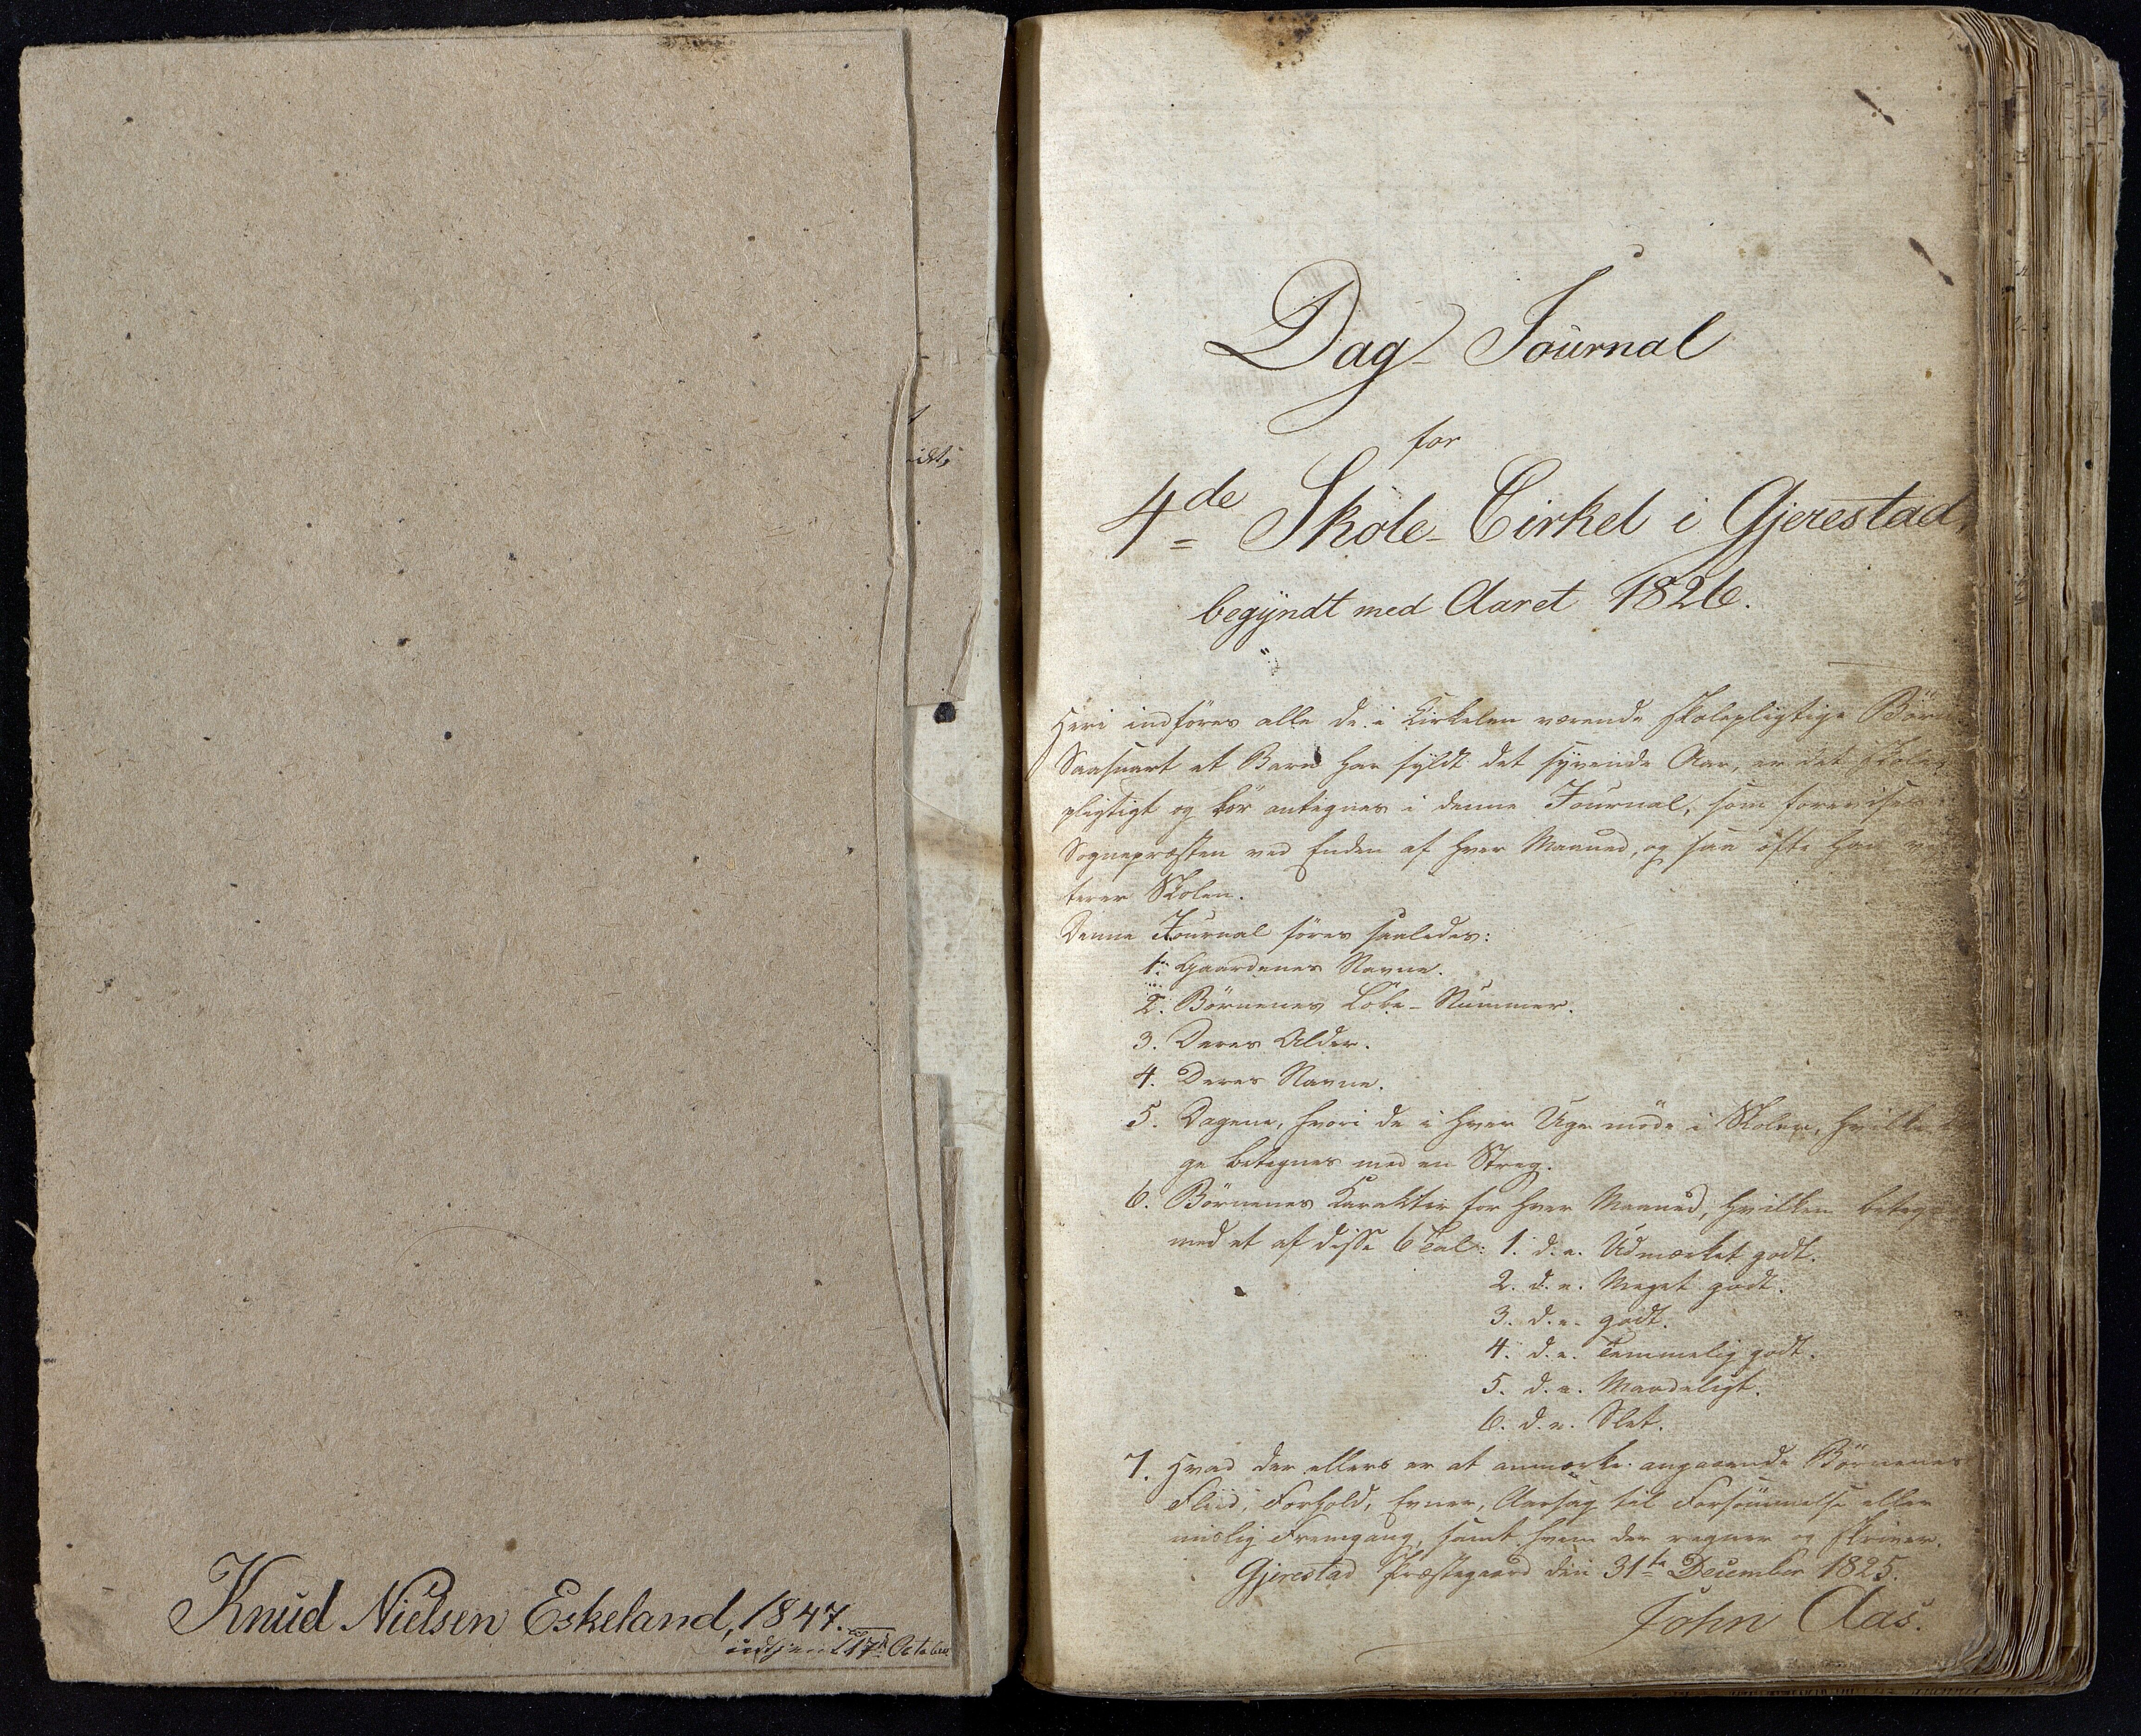 Knud Nielsen Eskeland, 1847.
17de October
Dag-Journal
for
4de Skole-Cirkel i Gjerestad,
begyndt med Aaret 1826.
Heri indføres alle de i Cirkelen værende skolepligtige Børn
Saasnart et Barn har fyldt det syvende Aar, er det skole-
pligtigt og bør antegnes i denne Journal, som forevises
Sognepræsten ved Enden af hver Maaned, og saa ofte han
terer Skolen.
Denne Journal føres saaledes:
1. Gaardenes Navne.
2. Børnenes Løbe-Nummer.
3. Deres Alder.
4. Deres Navne.
5. Dagene, hvori de i hver Uge møde i Skolen, hvilke
ge betegnes med en Streg.
6. Børnenes Karakter for hver Maaned, hvilken
med et af disse 6 Tal: 1. d.e. Udmærket godt.
2. d.e. Meget godt.
3. d.e. godt.
4. d.e. Temmelig godt.
5. d.e. Maadeligt.
6. d.e. Slet.
7. Hvad der ellers er at anmærke angaaende Børnenes
Fliid, Forhold, Evner, Aarsag til Forsømmelse eller
mislig Fremgang, samt hvem der regner og skriver.
Gjerestad Præstegaard den 31te December 1825.
John Aas.